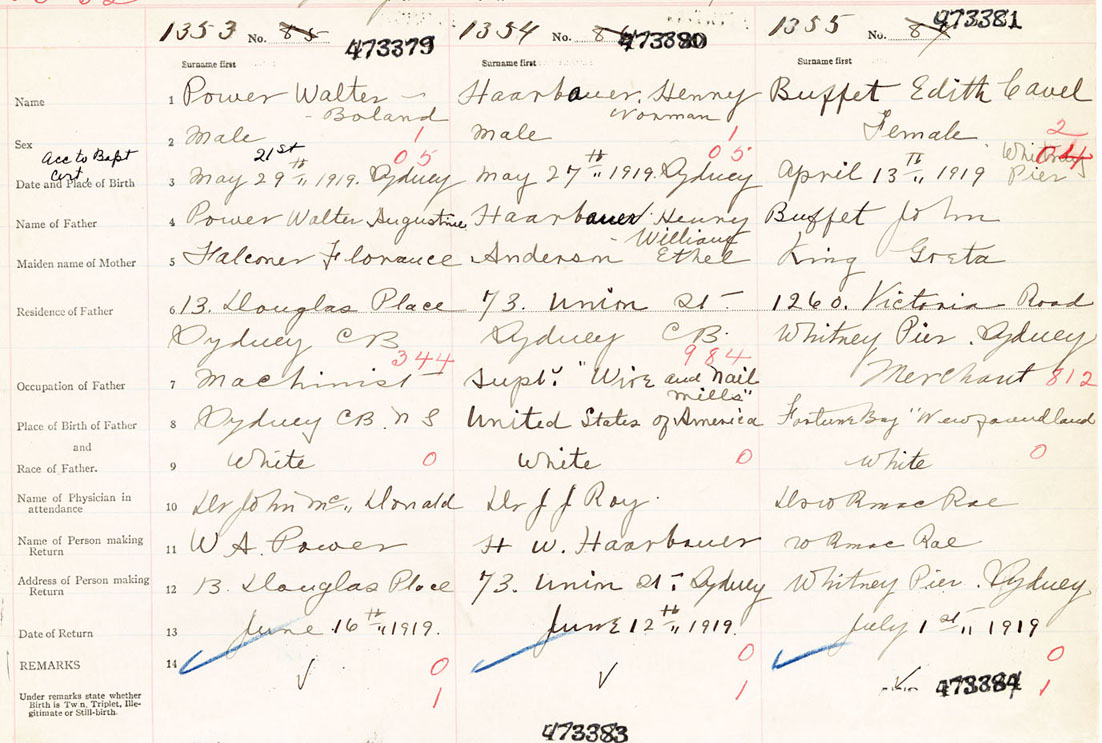 1353 No. 85 473379 1354 No. 473380 1355 No. 473381
Surname first Surname first Surname first
Name 1 Power Walter Haarbauer, Henry Buffet Edith Cavel
- Boland Norman
Sex 2 Male 1 Male 1 Female 2
Acc to Bapt Cert. 21st 05 05 04 Whitney
Date and Place of Birth 3 May 29th 1919. Sydney May 27th 1919. Sydney April 13th 1919 Pier
Name of Father 4 Power Walter Augustine Haarbauer Henry Buffet John
William
Maiden name of Mother 5 Falconer Florance Anderson Ethel King Greta
Residence of Father 6 13. Douglas Place 73. Union St 1260. Victoria Road
Sydney CB Sydney CB. Whitney Pier. Sydney
344 984
Occupation of Father 7 Machinist Supt. "Wire and Nail Merchant 812
Mills"
Place of Birth of Father 8 Sydney CB. N S United States of America Fortune Bay "Newfoundland
and
Race of Father. 9 White 0 White 0 White 0
Name of Physician in attendance 10 Dr John Mc Donald Dr J J Roy. Dr W R Mac Rae
Name of Person making Return 11 W A. Power H W. Haarbauer W R Mac Rae
Address of Person making Return 12 13. Douglas Place 73. Union St. Sydney Whitney Pier. Sydney
Date of Return 13 June 16th 1919. June 12th 1919. July 1st 1919
REMARKS 14 0 0 0
Under remarks state whether Birth is Twin, Triplet, Illegitimate or Still-birth. 1 1 473384 1
473383